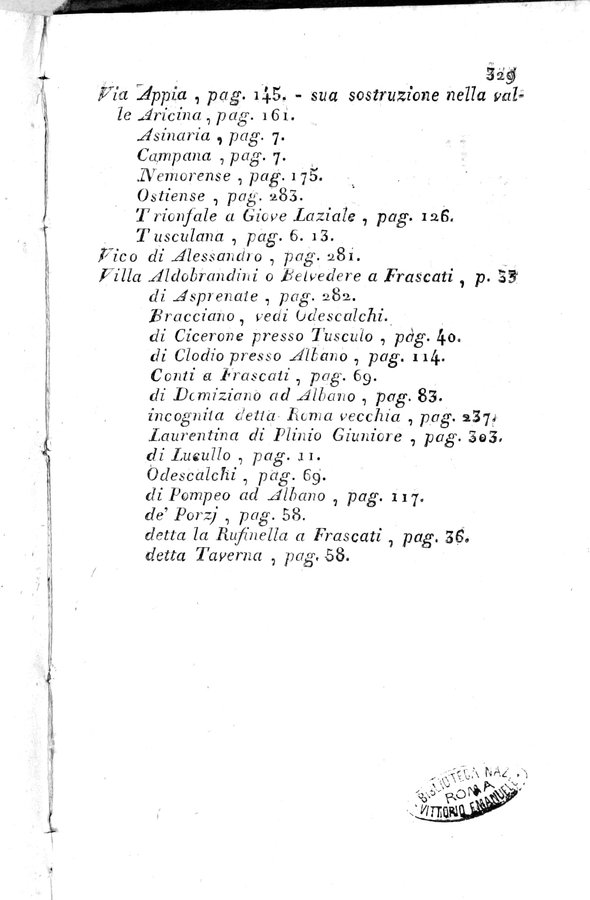 329
Via Appia , pag. 145. - sua sostruzione nella val-
le Aricina , pag. 161.
Asinaria , pag. 7.
Campana , pag. 7.
Nemorense , pag. 175.
Ostiense , pag. 283.
Trionfale a Giove Laziale , pag. 126.
Tusculana , pag. 6. 13.
Vico di Alessandro , pag. 281.
Villa Aldobrandini o Belvedere a Frascati , p. 33
di Asprenate , pag. 282.
Bracciano , vedi Odescalchi.
di Cicerone presso Tusculo , pag. 40.
di Clodio presso Albano , pag. 114.
Conti a Frascati , pag. 69.
di Domiziano ad Albano , pag. 83.
incognita detta Roma vecchia , pag. 237.
Laurentina di Plinio Giuniore , pag. 303.
di Lucullo , pag. 11.
Odescalchi , pag. 69.
di Pompeo ad Albano , pag. 117.
de' Porzj , pag. 58.
detta la Rufinella a Frascati , pag. 36.
detta Taverna , pag. 58.
BIBLIOTECA NAZ.
ROMA
VITTORIO EMANUELE